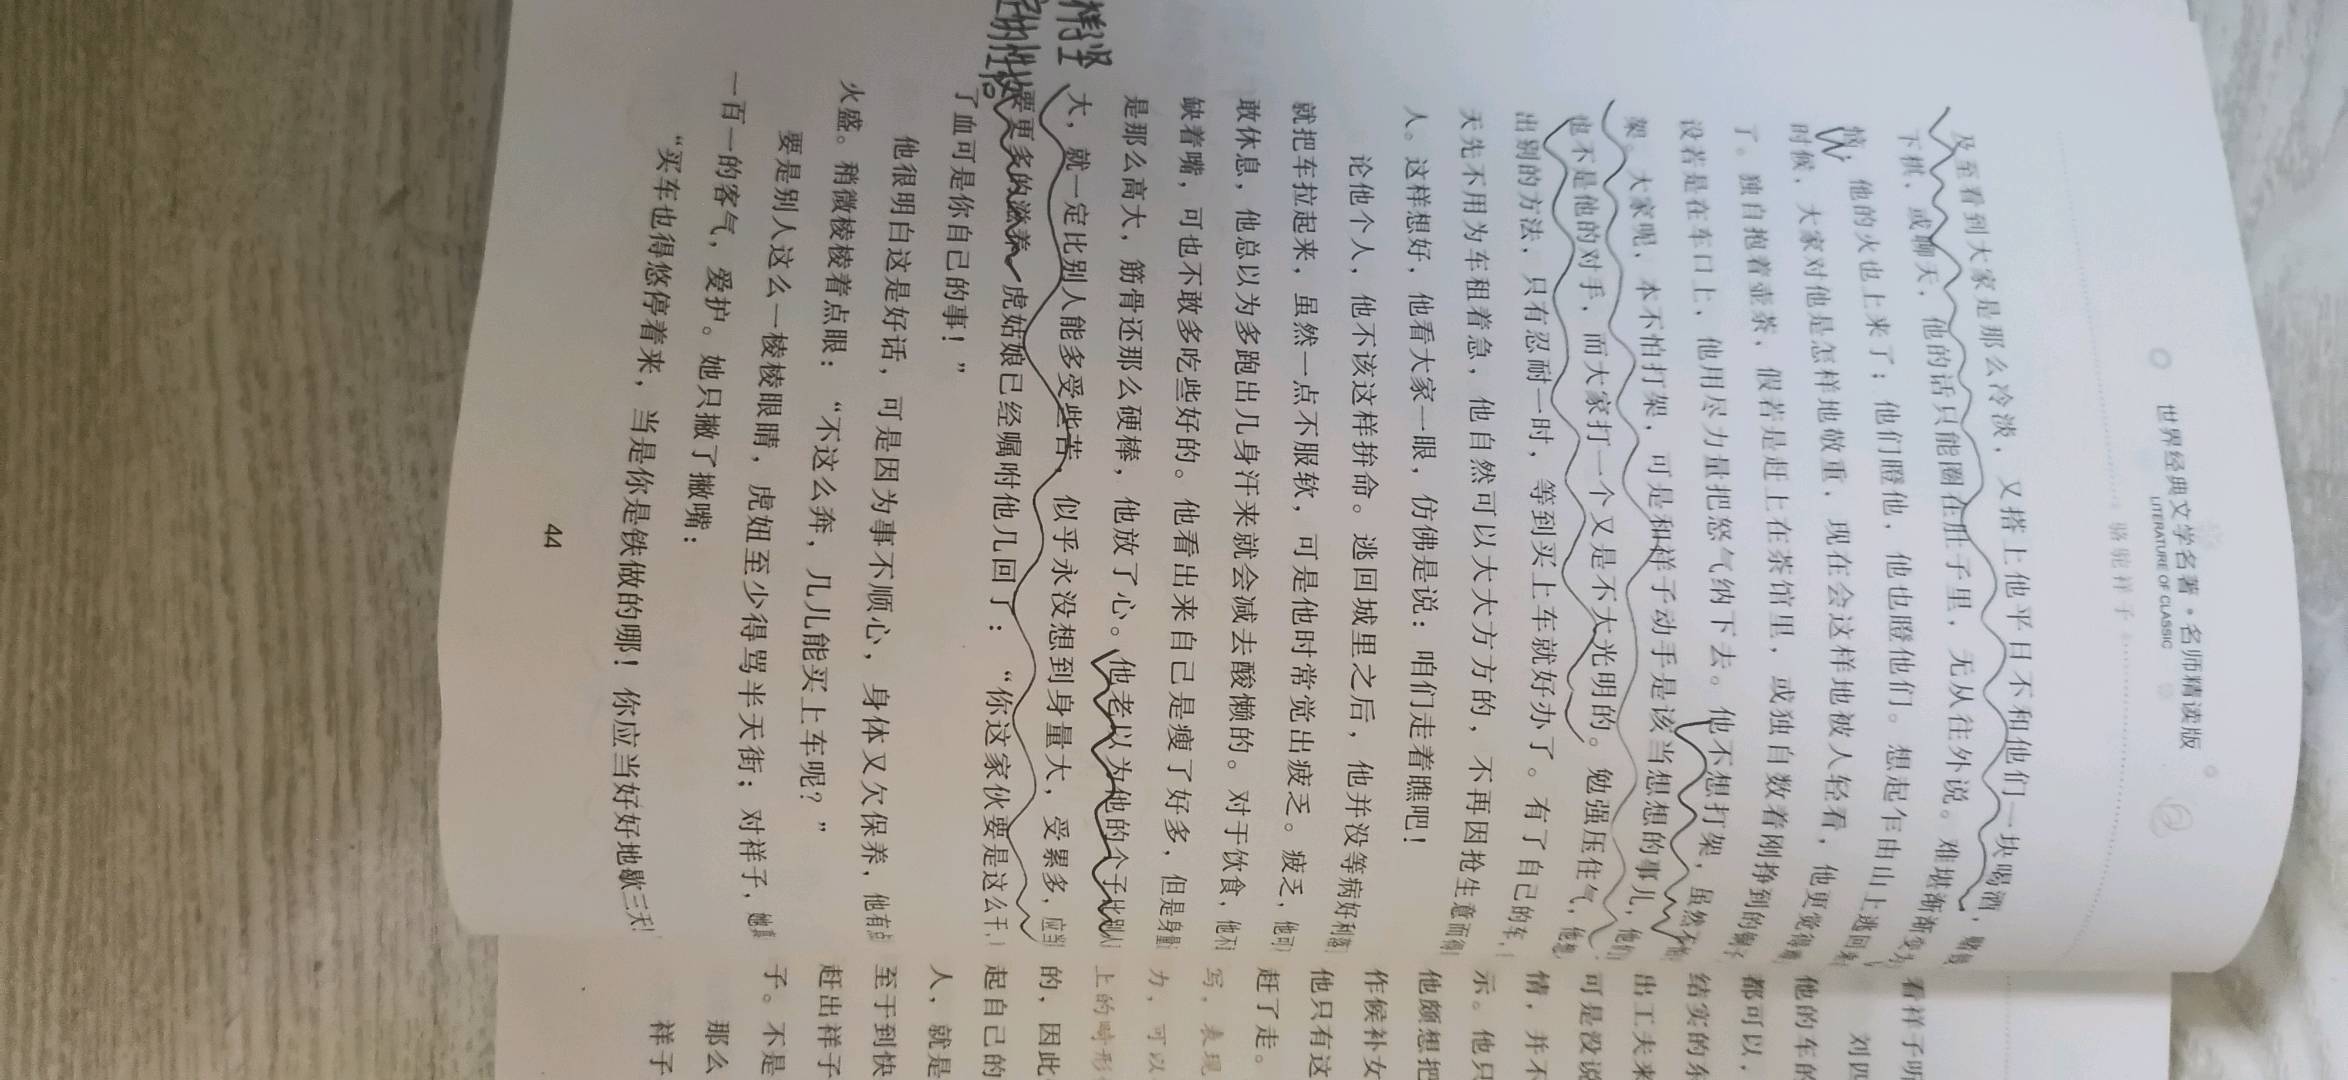 世界经典文学名著·名师精读版
LITERATURE OF CLASSIC
骆驼祥子
及至看到大家是那么冷淡，又搭上他平日不和他们一块喝酒，赌钱
下棋，或聊天，他的话只能圈在肚子里，无从往外说。难堪渐渐变为
他的火也上来了；他们瞪他，他也瞪他们。想起乍由山上逃回来
时候，大家对他是怎样地敬重，现在会这样地被人轻看，他更觉得
了。独自抱着壶茶，假若是赶上在茶馆里，或独自数着刚挣到的
设若是在车口上，他用尽力量把怒气纳下去。他不想打架，虽然不
架。大家呢，本不怕打架，可是和祥子动手是该当想想的事儿，他们
也不是他的对手，而大家打一个又是不大光明的。勉强压住气，他想
出别的方法，只有忍耐一时，等到买上车就好办了。有了自己的车，
天先不用为车租着急，他自然可以大大方方的，不再因抢生意而得
人。这样想好，他看大家一眼，仿佛是说：咱们走着瞧吧！
论他个人，他不该这样拚命。逃回城里之后，他并没等病好利落
就把车拉起来，虽然一点不服软，可是他时常觉出疲乏。疲乏，他可
敢休息，他总以为多跑出几身汗来就会减去酸懒的。对于饮食，他不
缺着嘴，可也不敢多吃些好的。他看出来自己是瘦了好多，但是身量
是那么高大，筋骨还那么硬棒，他放了心。他老以为他的个子比别人
大，就一定比别人能多受些苦，似乎永没想到身量大，受累多，应当
要更多的滋养。虎姑娘已经嘱咐他几回了：“你这家伙要是这么干，
了血可是你自己的事！”
他很明白这是好话，可是因为事不顺心，身体又欠保养，他有点
火盛。稍微棱棱着点眼：“不这么奔，几儿能买上车呢？”
要是别人这么一棱棱眼睛，虎妞至少得骂半天街；对祥子，她真
一百一的客气，爱护。她只撇了撇嘴：
“买车也得悠停着来，当是你是铁做的哪！你应当好好地歇三天！
44
看祥子听
刘四
他的车的
都可以，
结实的东
出工夫来
可是没说
情，并不
示。他只
他颇想把
作候补女
他只有这
赶了走。
写，表现
力，可以
上的畸形
的，因此
起自己的
人，就是
至于到快
赶出祥子
子。不是
那么
祥子